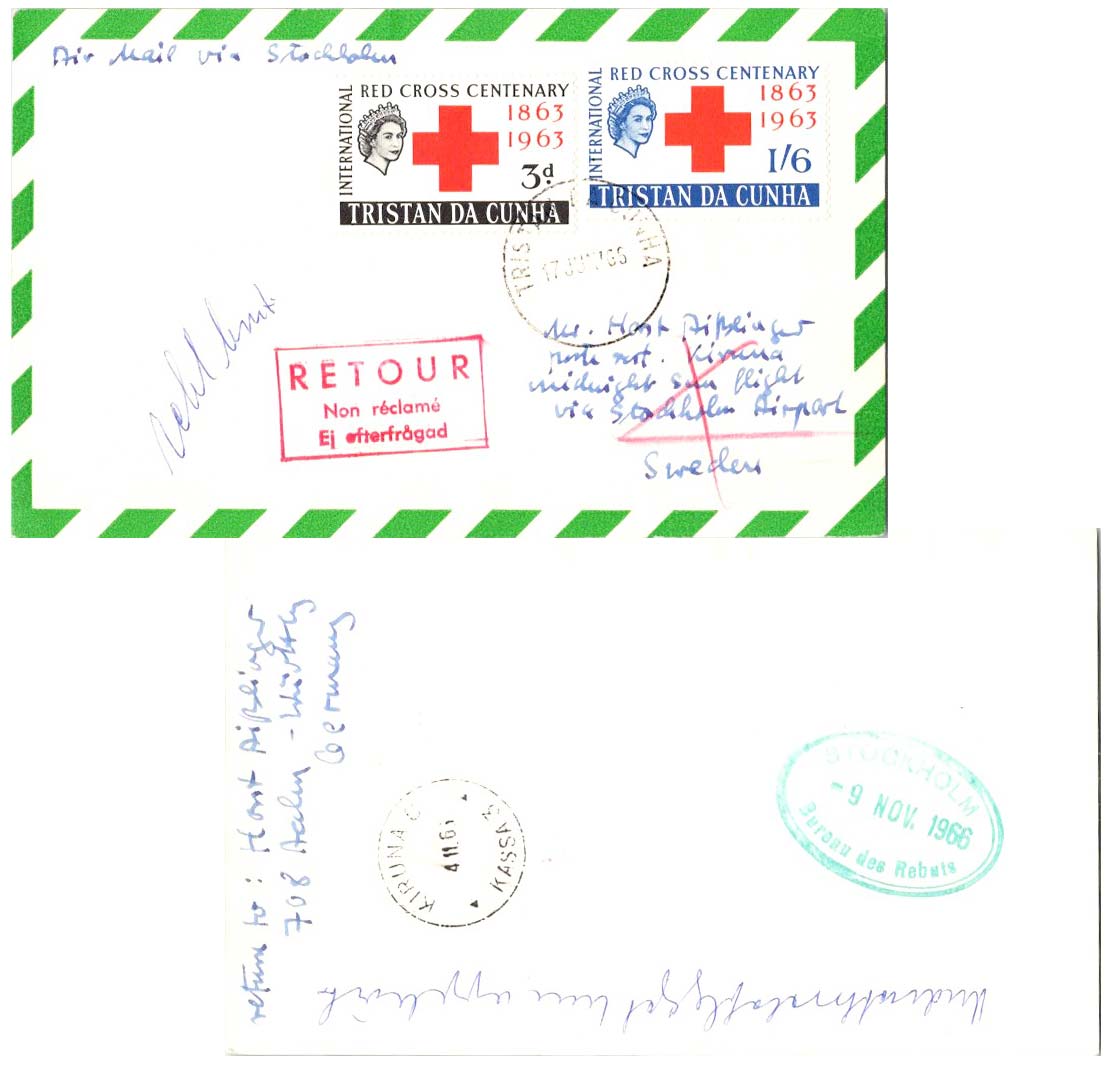 Air Mail via Stockholm
INTERNATIONAL
RED CROSS CENTENARY
1863
1963
3d
TRISTAN DA CUNHA
INTERNATIONAL
RED CROSS CENTENARY
1863
1963
1/6
TRISTAN DA CUNHA
TRISTAN DA CUNHA
17 65
Mr. Horst Aißlinger
poste rest. Kiruna
midnight sun flight
via Stockholm Airport
Sweden
RETOUR
Non réclamé
Ej efterfrågad
return to: Horst Aißlinger
708 Aalen -
Germany
KIRUNA C
4.11.6
KASSA 3
STOCKHOLM
-9 NOV. 1966
Bureau des Rebuts